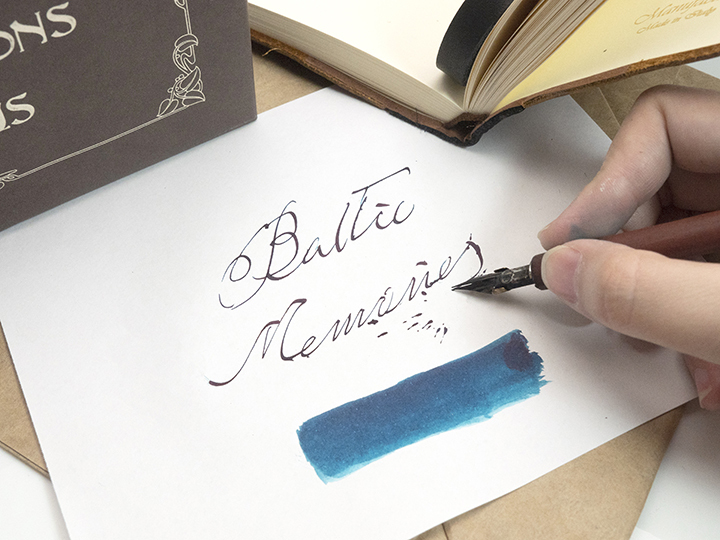 ONS
Baltic
Memories